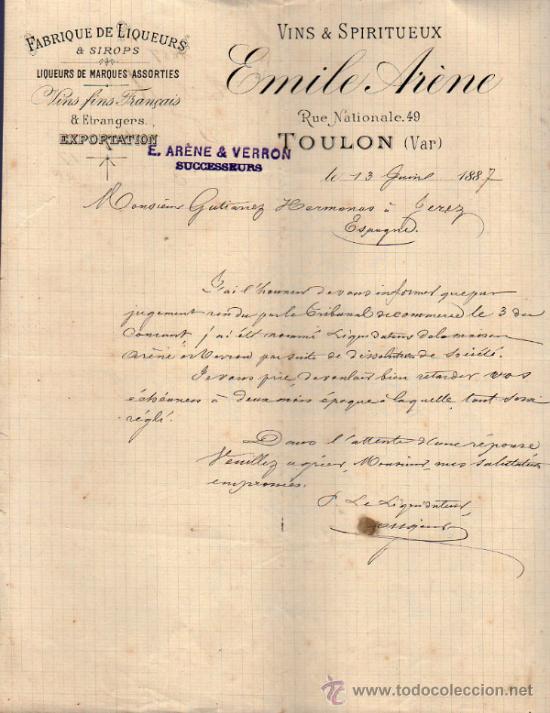 FABRIQUE DE LIQUEURS
& SIROPS
LIQUEURS DE MARQUES ASSORTIES
Vins fins Français
& Etrangers.
EXPORTATION
VINS & SPIRITUEUX
Emile Arène
Rue Nationale. 49
TOULON (Var)
E. ARÈNE & VERRON
SUCCESSEURS
le 13 1887
Monsieur Gutierrez Hermanos à Jerez
Espagne.
J'ai l'honneur de vous informer que par
jugement rendu par le Tribunal de commerce le 3 du
Courant j'ai été nommé Liquidateur de la maison
Arène et Verron par suite de dissolution de société.
Je vous prie, de vouloir bien retarder vos
échéances à deux mois époque à laquelle tout sera
réglé.
Dans l'attente d'une réponse
Veuillez agréer, Monsieur, mes salutations
empressées.
P. Le Liquidateur,
www.todocoleccion.net